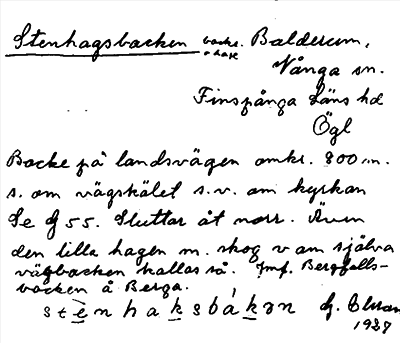 Stenhagsbacken backe o hage Balderum,
Vånga sn.
Finspånga Läns hd
Ögl
Backe på landsvägen omkr. 800 m.
s. om vägskälet s.v. om kyrkan
Se G 55. Sluttar åt norr. Även
den lilla hagen m. skog v om själva
vägbacken kallas så. Jmf. Bergfalls-
backen å Berga.
stènhaksbákən G.
1937